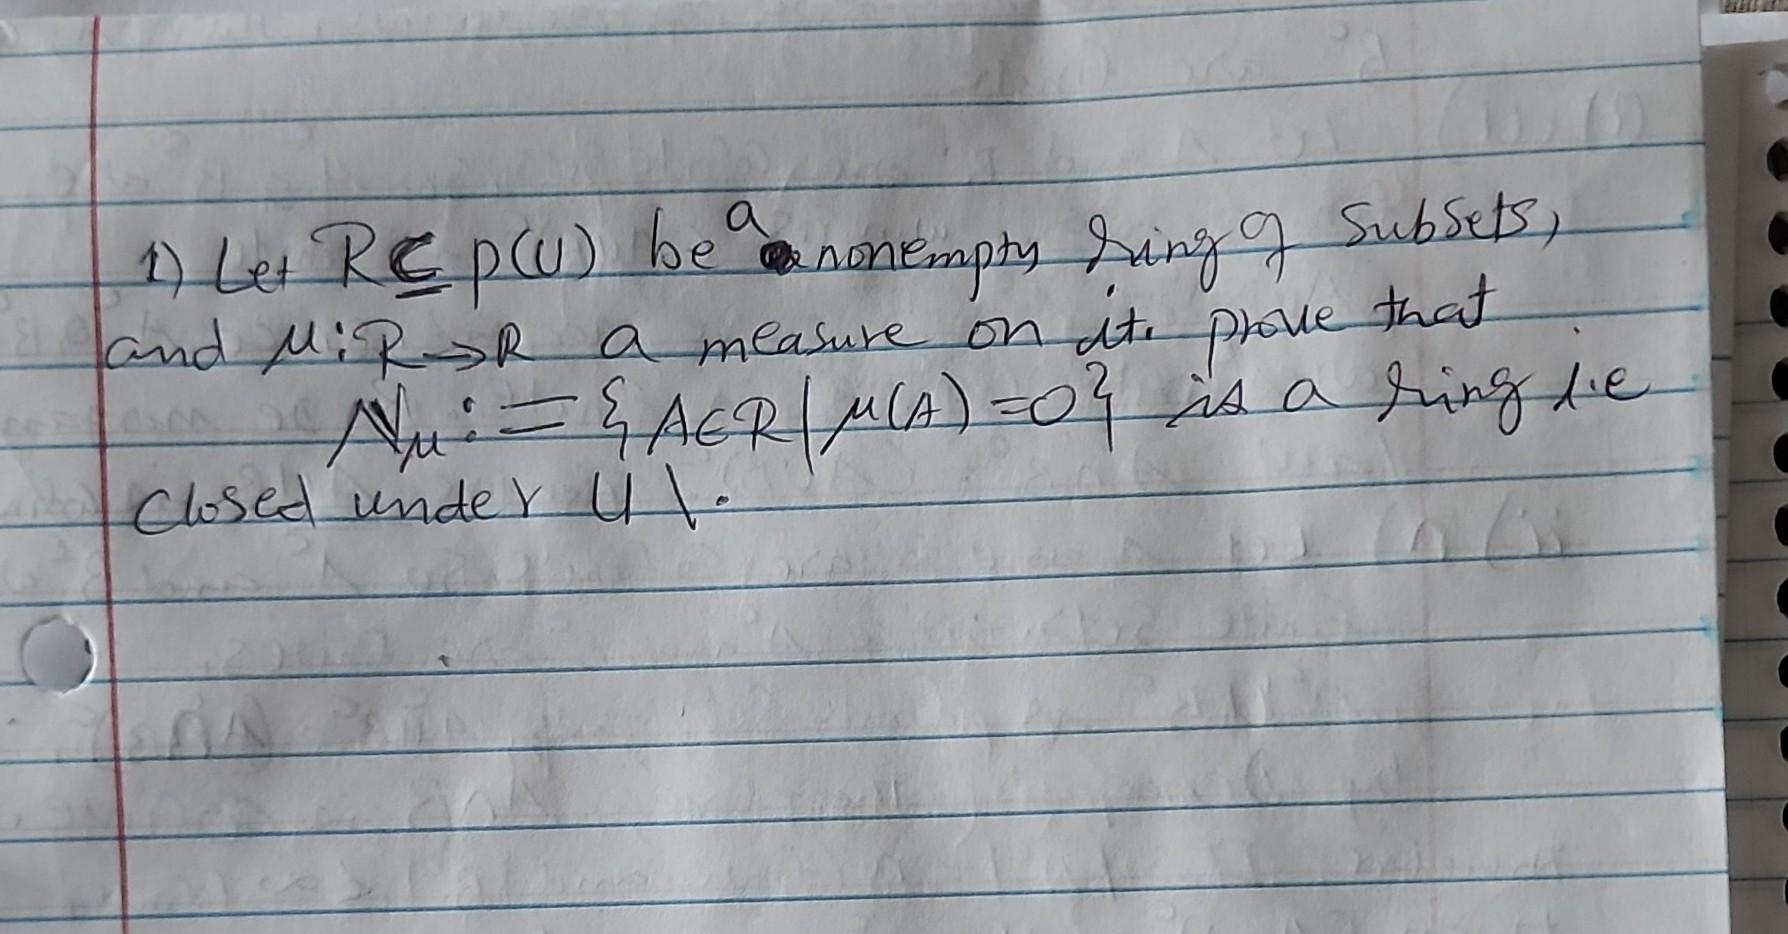 1) Let R ⊆ p(U) be a nonempty ring of subsets,
and μ: R → R a measure on it. prove that
Nμ := {A∈R | μ(A) = 0} is a ring i.e
closed under U \.